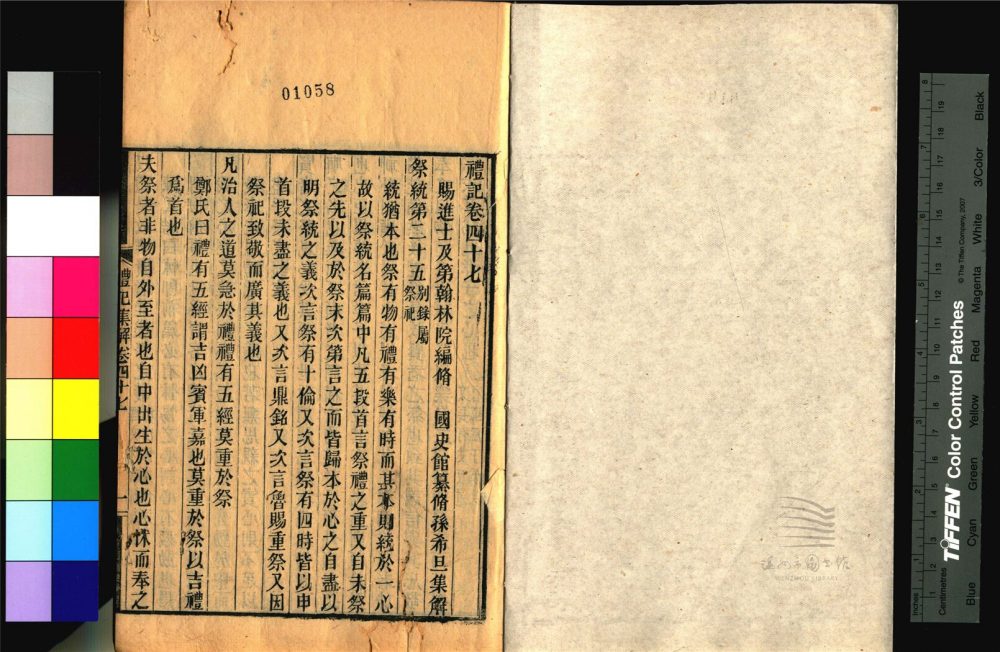 01058
禮記卷四十七
賜進士及第翰林院編脩 國史館纂脩孫希旦集解
祭統第二十五別錄屬祭祀
統猶本也祭有物有禮有樂有時而其本則統於一心
故以祭統名篇篇中凡五段首言祭禮之重又自未祭
之先以及於祭末次第言之而皆歸本於心之自盡以
明祭統之義次言祭有十倫又次言祭有四時皆以申
首段未盡之義也又次言鼎銘又次言魯賜重祭又因
祭祀致敬而廣其義也
凡治人之道莫急於禮禮有五經莫重於祭
鄭氏曰禮有五經謂吉凶賓軍嘉也莫重於祭以吉禮
爲首也
夫祭者非物自外至者也自中出生於心也心怵而奉之
禮記集解卷四十七
一
溫州市圖書館
WENZHOU LIBRARY
Inches
Centimetres
1 2 3 4 5 6 7 8
1 2 3 4 5 6 7 8 9 10 11 12 13 14 15 16 17 18 19
TIFFEN Color Control Patches
© The Tiffen Company, 2007
Blue Cyan Green Yellow Red Magenta White 3/Color Black